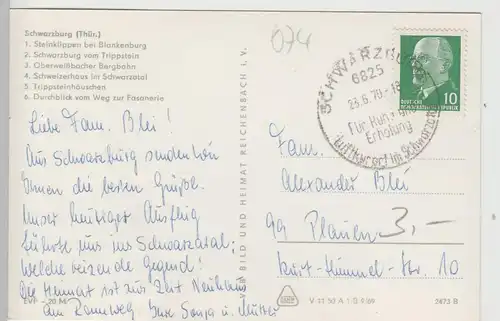 Schwarzburg (Thür.)
1. Steinklippen bei Blankenburg
2. Schwarzburg vom Trippstein
3. Oberweißbacher Bergbahn
4. Schweizerhaus im Schwarzatal
5. Trippsteinhäuschen
6. Durchblick vom Weg zur Fasanerie
074
SCHWARZBURG
6825
23.6.70-18
Für Kur und
Erholung
Luftkurort im Schwarzatal
10
DEUTSCHE
DEMOKRATISCHE REPUBLIK
Liebe Fam. Blei!
Aus Schwarzburg senden wir
Ihnen die besten Grüße.
Unser heutiger Ausflug
führte uns ins Schwarzatal;
welche reizende Gegend!
Die Heimat ist zur Zeit Neuhaus
am Rennweg Ihre Sonja u. Mutter
EVP -,20 M
VEB BILD UND HEIMAT REICHENBACH I. V.
Fam.
Alexander Blei
99 Plauen
3,-
Kurt-Himmel-Str. 10
V 11 50 A 1 B 6/69
2473 B